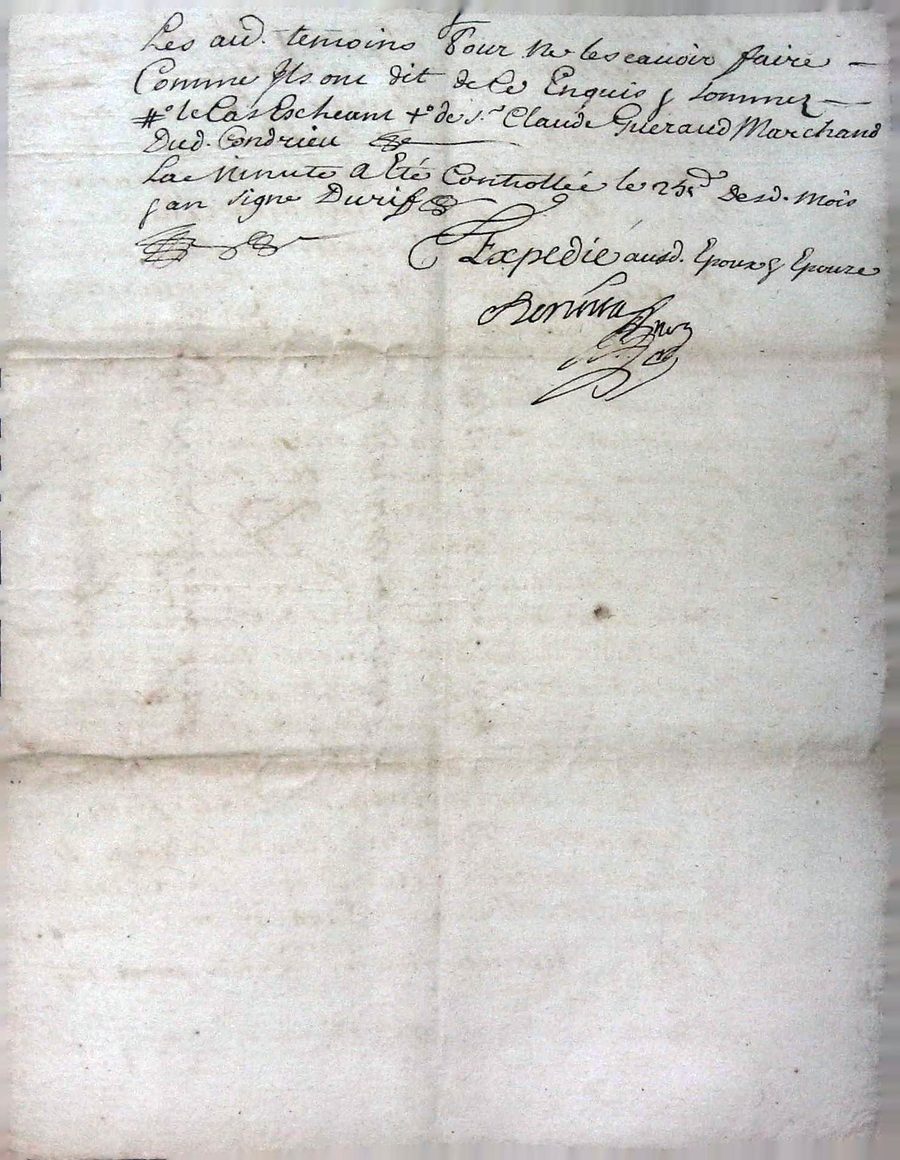 Les aud. temoins Pour ne lescauoir faire
Comme Ils ont dit de Ce Enquis & sommez
#° le Cas Escheant +° de s.r Claude Gueraud Marchand
Dud. Condrieu
La Minute a Eté Controllée le 25e Desd. mois
& an Signe Durif
Expedié ausd. Epoux & Epouze